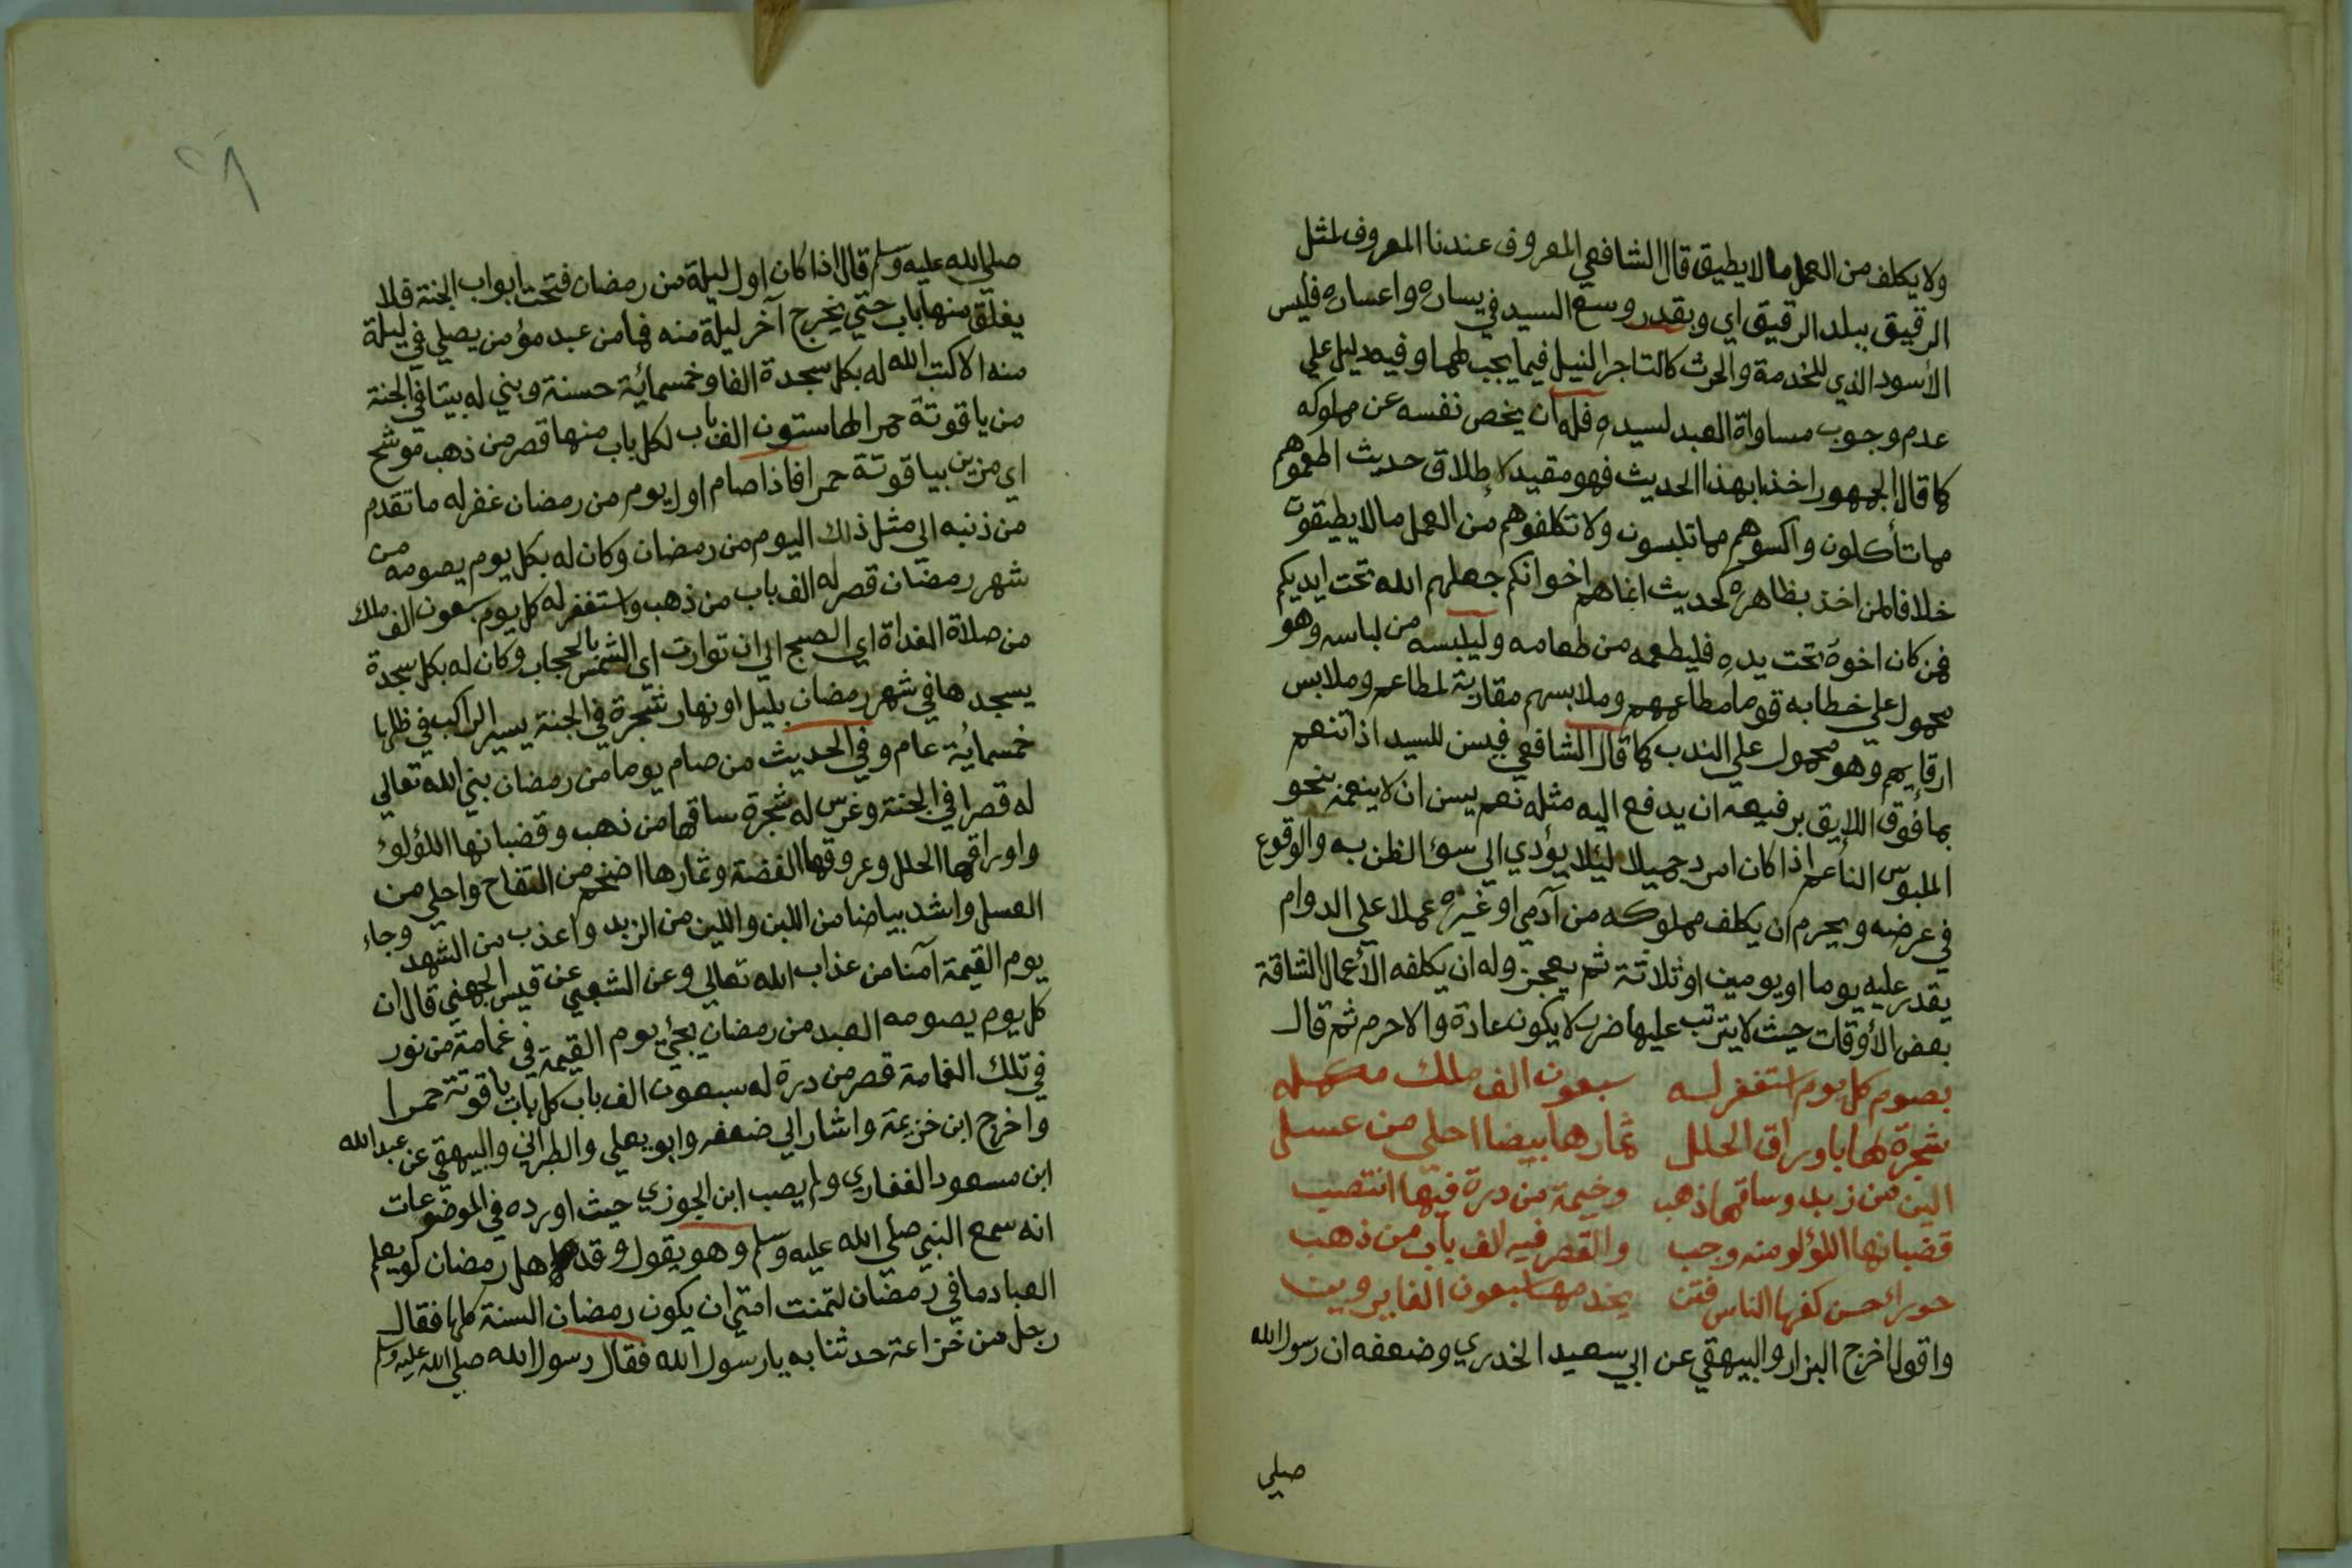 ولا يكلف من العمل ما لا يطيق قال الشافعي المعروف عندنا المعروف لمثل
الرقيق ببلد الرقيق اي وبقدر وسع السيد في يساره واعساره فليس
الأسود الذي للخدمة والحرث كالتاجر النبيل فيما يجب لهما وفيه دليل علي
عدم وجوب مساواة العبد لسيده فله ان يخص نفسه عن مملوكه
كما قال الجمهور اخذا بهذا الحديث فهو مقيد لإطلاق حديث اطعموهم
مما تأكلون واكسوهم مما تلبسون ولا تكلفوهم من العمل ما لا يطيقون
خلافا لمن اخذ بظاهره كحديث انما هم اخوانكم جعلهم الله تحت ايديكم
فمن كان اخوه تحت يده فليطعمه من طعامه وليلبسه من لباسه وهو
محمول علي خطابه قوما مطاعمهم وملابسهم مقاربة لمطاعم وملابس
ارقايهم وهو محمول علي الندب كما قال الشافعي فيسن للسيد اذا تنعم
بما فوق اللايق برفيعه ان يدفع اليه مثله نعم يسن ان لا ينعمه بنحو
الملبوس الناعم اذا كان امرد جميلا ليلا يؤدي الي سوء الظن به والوقوع
في عرضه ويحرم ان يكلف مملوكه من آدمي او غيره عملا علي الدوام
يقدر عليه يوما او يومين او ثلاثة ثم يعجز وله ان يكلفه الأعمال الشاقة
بعض الأوقات حيث لا يترتب عليها ضرر لا يكون عادة والا حرم ثم قال
بصوم كل يوم استغفر له سبعون الف ملك مكمله
شجرة لها باوراق الحلل ثمارها بيضا احلي من عسل
الين من زبد وساقها ذهب وخيمة من درة فيها انتصب
قضبانها اللؤلو منه وجب والقصر فيه الف باب من ذهب
حوراء حسن كفها الناس فتن يخدمها سبعون الفا
واقول اخرج البزار والبيهقي عن ابي سعيد الخدري وضعفه ان رسول الله
صلي
٢٨
صلي الله عليه وسلم قال اذا كان اول ليلة من رمضان فتحت ابواب الجنة فلا
يغلق منها باب حتي يخرج آخر ليلة منه فما من عبد مؤمن يصلي في ليلة
منه الا كتب الله له بكل سجدة الفا وخمسمائة حسنة وبني له بيتا في الجنة
من ياقوتة حمرا لها ستون الف باب لكل باب منها قصر من ذهب موشح
اي مزين بياقوتة حمرا فاذا صام اول يوم من رمضان غفر له ما تقدم
من ذنبه الي مثل ذلك اليوم من رمضان وكان له بكل يوم يصومه من
شهر رمضان قصر له الف باب من ذهب واستغفر له كل يوم سبعون الف ملك
من صلاة الغداة اي الصبح الي ان توارت اي الشمس بالحجاب وكان له بكل سجدة
يسجدها في شهر رمضان بليل او نهار شجرة في الجنة يسير الراكب في ظلها
خمسمائة عام وفي الحديث من صام يوما من رمضان بني الله تعالي
له قصرا في الجنة وغرس له شجرة ساقها من ذهب وقضبانها اللؤلؤ
واوراقها الحلل وعروقها الفضة وثمارها اضخم من التفاح واحلي من
العسل واشد بياضا من اللبن والين من الزبد واعذب من الشهد وجاء
يوم القيمة آمنا من عذاب الله تعالي وعن الشعبي عن قيس الجهني قال ان
كل يوم يصومه العبد من رمضان يجيء يوم القيمة في غمامة من نور
في تلك الغمامة قصر من درة له سبعون الف باب كل باب ياقوتة حمرا
واخرج ابن خزيمة واشار الي ضعفه وابو يعلي والطبراني والبيهقي عن عبد الله
ابن مسعود الغفاري ولم يصب ابن الجوزي حيث اورده في الموضوعات
انه سمع النبي صلي الله عليه وسلم وهو يقول وقد اهل رمضان لو يعلم
العباد ما في رمضان لتمنت امتي ان يكون رمضان السنة كلها فقال
رجل من خزاعة حدثنا به يا رسول الله فقال رسول الله صلي الله عليه وسلم